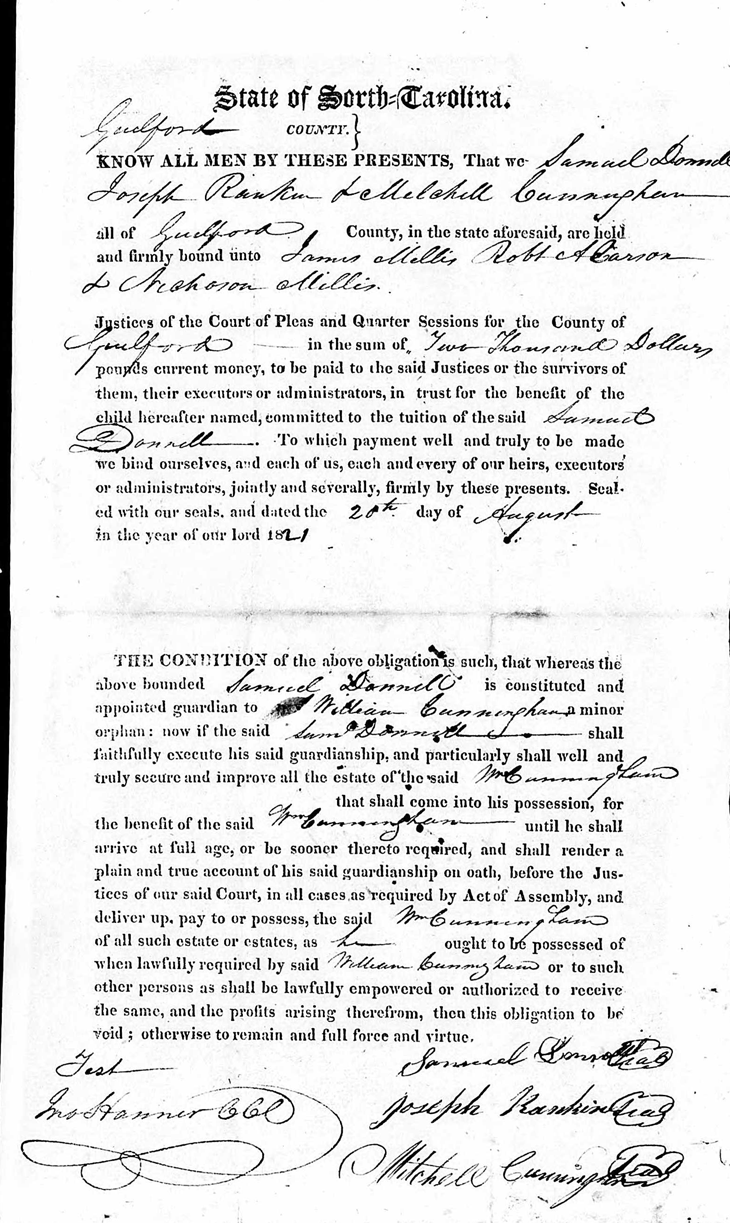 State of North-Carolina.
Guilford COUNTY.}
KNOW ALL MEN BY THESE PRESENTS, That we Samuel Donnell
Joseph Rankin & Mitchell Cunningham
all of Guilford County, in the state aforesaid, are held
and firmly bound unto James Mellis Robt A Carson
& Nichoson Millis.
Justices of the Court of Pleas and Quarter Sessions for the County of
Guilford in the sum of Two Thousand Dollars
pounds current money, to be paid to the said Justices or the survivors of
them, their executors or administrators, in trust for the benefit of the
child hereafter named, committed to the tuition of the said Samuel
Donnell. To which payment well and truly to be made
we bind ourselves, and each of us, each and every of our heirs, executors
or administrators, jointly and severally, firmly by these presents. Seal-
ed with our seals, and dated the 20th day of August
in the year of our lord 1821
THE CONDITION of the above obligation is such, that whereas the
above bounded Samuel Donnell is constituted and
appointed guardian to William Cunningham a minor
orphan: now if the said Saml Donnell shall
faithfully execute his said guardianship, and particularly shall well and
truly secure and improve all the estate of the said Wm Cunningham
that shall come into his possession, for
the benefit of the said Wm Cunningham until he shall
arrive at full age, or be sooner thereto required, and shall render a
plain and true account of his said guardianship on oath, before the Jus-
tices of our said Court, in all cases as required by Act of Assembly, and
deliver up, pay to or possess, the said Wm Cunningham
of all such estate or estates, as he ought to be possessed of
when lawfully required by said William Cunningham or to such
other persons as shall be lawfully empowered or authorized to receive
the same, and the profits arising therefrom, then this obligation to be
void; otherwise to remain and full force and virtue.
Test Samuel Donnell Seal
Jno Hanner CCC Joseph Rankin Seal
Mitchell Cunningham Seal